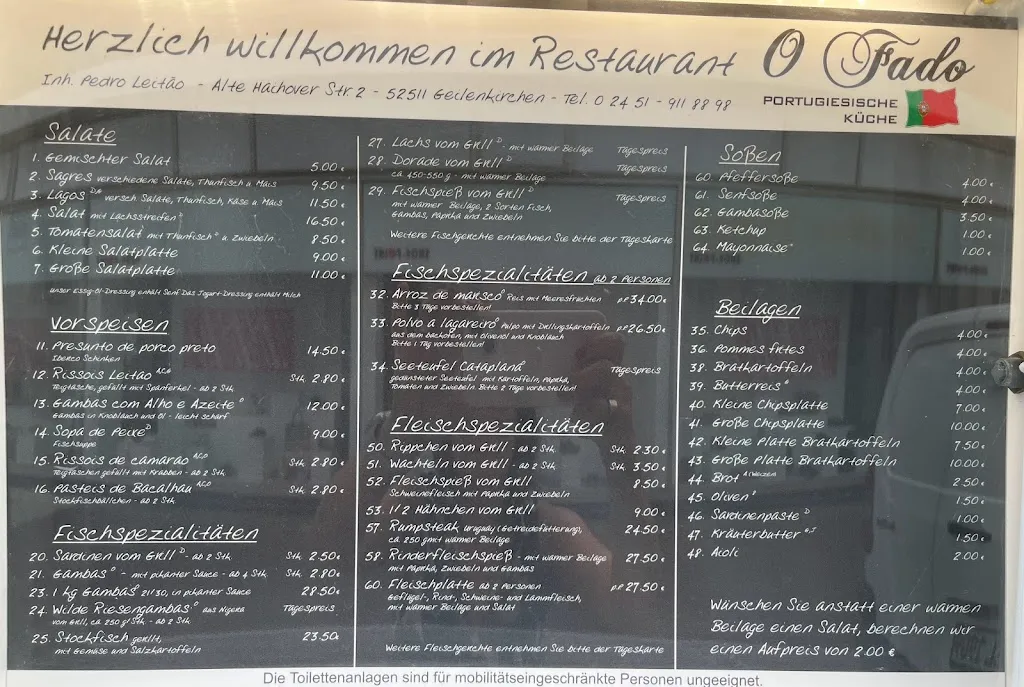 Herzlich willkommen im Restaurant O Fado
Inh. Pedro Leitão - Alte Haihover Str. 2 - 52511 Geilenkirchen - Tel. 0 24 51 - 911 88 98
PORTUGIESISCHE
KÜCHE
Salate
1. Gemischter Salat 5.00 €
2. Sagres verschiedene Salate, Thunfisch u. Mais 9.50 €
3. Lagos versch. Salate, Thunfisch, Käse u. Mais 11.50 €
4. Salat mit Lachsstreifen 16.50 €
5. Tomatensalat mit Thunfisch u. Zwiebeln 8.50 €
6. Kleine Salatplatte 9.00 €
7. Große Salatplatte 11.00 €
Unser Essig-Öl-Dressing enthält Senf. Das Jogurt-Dressing enthält Milch
Vorspeisen
11. Presunto de porco preto 14.50 €
Iberico Schinken
12. Rissois Leitão A,C,G Stk. 2.80 €
Teigtasche, gefüllt mit Spanferkel - ab 2 Stk.
13. Gambas com Alho e Azeite 12.00 €
Gambas in Knoblauch und Öl - leicht scharf
14. Sopa de Peixe D 9.00 €
Fischsuppe
15. Rissois de camarão A,C,D Stk. 2.80 €
Teigtaschen gefüllt mit Krabben - ab 2 Stk.
16. Pasteis de Bacalhau A,C,D Stk. 2.80 €
Stockfischbällchen - ab 2 Stk.
Fischspezialitäten
20. Sardinen vom Grill D - ab 2 Stk. Stk. 2.50 €
21. Gambas - mit pikanter Sauce - ab 4 Stk. Stk. 2.80 €
23. 1 kg Gambas 21/30, in pikanter Sauce 28.50 €
24. Wilde Riesengambas aus Nigeria Tagespreis
vom Grill, ca. 250 g/Stk. - ab 2 Stk.
25. Stockfisch grillt, 23.50
mit Gemüse und Salzkartoffeln
27. Lachs vom Grill D - mit warmer Beilage Tagespreis
28. Dorade vom Grill D Tagespreis
ca. 450-550 g - mit warmer Beilage
29. Fischspieß vom Grill D Tagespreis
mit warmer Beilage, 2 Sorten Fisch,
Gambas, Paprika und Zwiebeln
Weitere Fischgerichte entnehmen Sie bitte der Tageskarte
Fischspezialitäten ab 2 Personen
32. Arroz de marisco Reis mit Meeresfrüchten p.P. 34.00 €
Bitte 3 Tage vorbestellen!
33. Polvo a lagareiro Pulpo mit Drillingskartoffeln p.P. 26.50 €
aus dem Backofen, mit Olivenöl und Knoblauch
Bitte 1 Tag vorbestellen!
34. Seeteufel Cataplana Tagespreis
gedünsteter Seeteufel mit Kartoffeln, Paprika,
Tomaten und Zwiebeln. Bitte 2 Tage vorbestellen!
Fleischspezialitäten
50. Rippchen vom Grill - ab 2 Stk. Stk. 2.30 €
51. Wachteln vom Grill - ab 2 Stk. Stk. 3.50 €
52. Fleischspieß vom Grill 8.50 €
Schweinefleisch mit Paprika und Zwiebeln
53. 1/2 Hähnchen vom Grill 9.00 €
57. Rumpsteak Uruguay (Getreidefütterung), 24.50 €
ca. 250 g mit warmer Beilage
58. Rinderfleischspieß - mit warmer Beilage 27.50 €
mit Paprika, Zwiebeln und Gambas
60. Fleischplatte ab 2 Personen p.P. 27.50 €
Geflügel-, Rind-, Schweine- und Lammfleisch,
mit warmer Beilage und Salat
Weitere Fleischgerichte entnehmen Sie bitte der Tageskarte
Soßen
60. Pfeffersoße 4.00 €
61. Senfsoße 4.00 €
62. Gambasoße 3.50 €
63. Ketchup 1.00 €
64. Mayonnaise 1.00 €
Beilagen
35. Chips 4.00 €
36. Pommes frites 4.00 €
38. Bratkartoffeln 4.00 €
39. Butterreis 4.00 €
40. Kleine Chipsplatte 7.00 €
41. Große Chipsplatte 10.00 €
42. Kleine Platte Bratkartoffeln 7.50 €
43. Große Platte Bratkartoffeln 10.00 €
44. Brot A (Weizen) 2.50 €
45. Oliven 1.50 €
46. Sardinenpaste D 1.00 €
47. Kräuterbutter G,J 1.50 €
48. Aioli 2.00 €
Wünschen Sie anstatt einer warmen
Beilage einen Salat, berechnen wir
einen Aufpreis von 2.00 €
Die Toilettenanlagen sind für mobilitätseingeschränkte Personen ungeeignet.